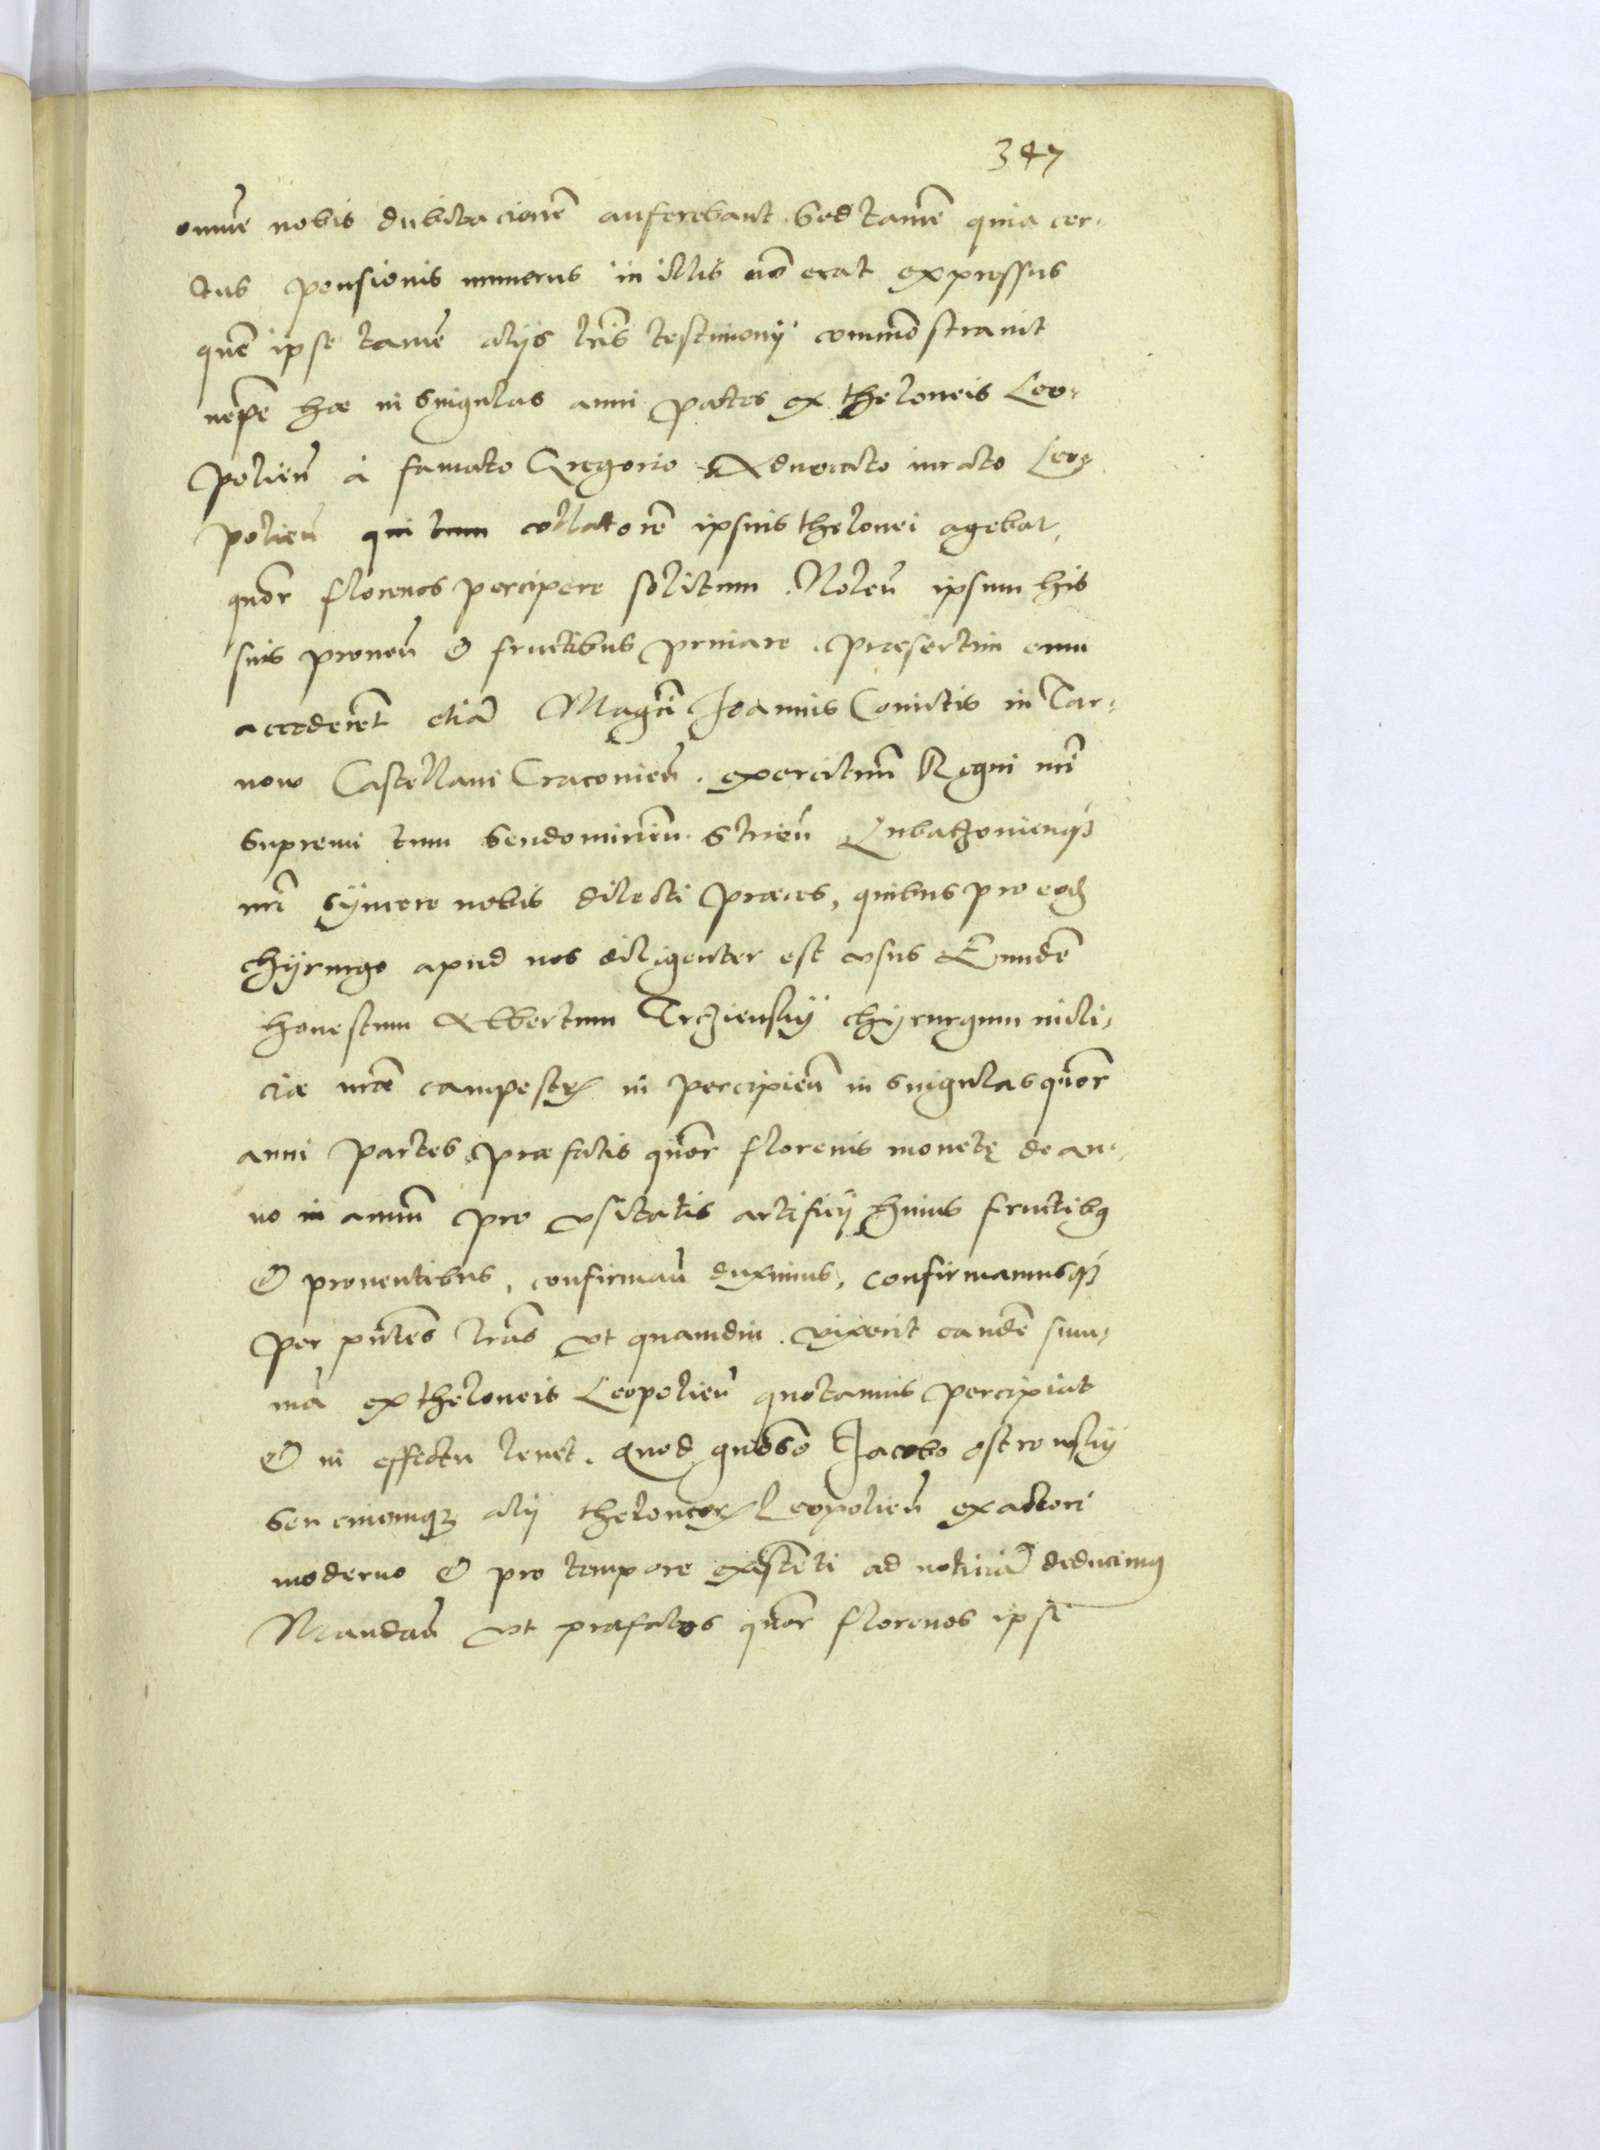 347
omnē nobis dubitacionē auferebant. Sed tamē quia cer-
tus pensionis numerus in illis nō erat expressus
quē ipse tamē alijs lr̃is testimonij commōstrauit
nēpe hoc in singulas anni partes ex theloneis Leo-
polieñ à famato Gregorio Aduocato iurato Leo-
polieñ qui tum collatorē ipsius thelonei agebat,
quor florenos percipere solitum. Noleñ ipsum his
suis proueñ & fructibus priuare. Præsertim cum
accederēt etiā Magci Joannis Comitis in Tar-
now Castellani Cracouieñ. exercituū Regni nr̃i
supremi tum Sendomirieñ. Strieñ Lubaczouieñq₃
nr̃i syncere nobis dilecti præces, quibus pro eod
chyrurgo apud nos diligenter est vsus Eundē
honestum Albertum Trcziensky chyrurgum mili-
ciæ nr̃æ campestr in percipieñ in singulas quor
anni partes præfatis quor florenis monetę de an-
no in annū pro vsitatis artificij huius fructibꝰ
& prouentibus, confirmañ duximus, confirmamusq₃
per pñtes lr̃as vt quamdiu vixerit eandē sum-
mā ex theloneis Leopolieñ quotannis percipiat
& in effectu leuet. Quod gñoso Jacobo Ostrowsky
seu cuicumq₃ alij theloneor Leopolieñ exactori
moderno & pro tempore existēti ad noticiā deducimꝰ
Mandañ vt præfatos quor florenos ipsi